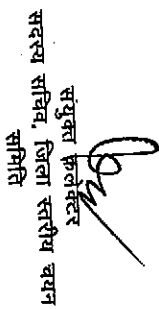 संयुक्त कलेक्टर
सदस्य सचिव, जिला स्तरीय चयन
समिति